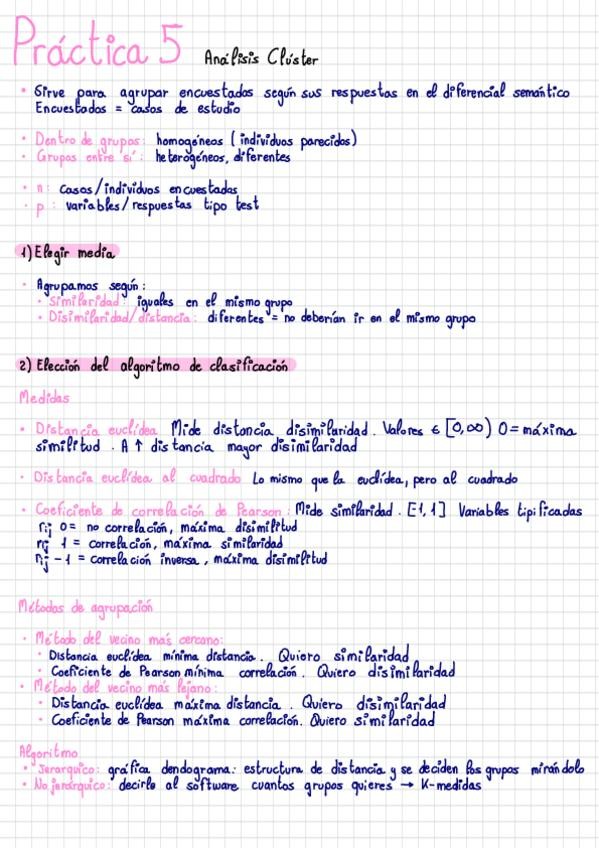 Práctica 5 Análisis Clúster
• Sirve para agrupar encuestados según sus respuestas en el diferencial semántico
Encuestados = casos de estudio
• Dentro de grupos: homogéneos (individuos parecidos)
• Grupos entre sí: heterogéneos, diferentes
• n: casos/individuos encuestados
• p: variables/respuestas tipo test
1) Elegir media
• Agrupamos según:
• Similaridad: iguales en el mismo grupo
• Disimilaridad/distancia: diferentes = no deberían ir en el mismo grupo
2) Elección del algoritmo de clasificación
Medidas
• Distancia euclídea Mide distancia disimilaridad. Valores ∈ [0,∞) 0 = máxima
similitud. A ↑ distancia mayor disimilaridad
• Distancia euclídea al cuadrado Lo mismo que la euclídea, pero al cuadrado
• Coeficiente de correlación de Pearson: Mide similaridad. [-1,1] Variables tipificadas
rij 0 = no correlación, máxima disimilitud
rij 1 = correlación, máxima similaridad
rij -1 = correlación inversa, máxima disimilitud
Métodos de agrupación
• Método del vecino más cercano:
• Distancia euclídea mínima distancia. Quiero similaridad
• Coeficiente de Pearson mínima correlación. Quiero disimilaridad
• Método del vecino más lejano:
• Distancia euclídea máxima distancia. Quiero disimilaridad
• Coeficiente de Pearson máxima correlación. Quiero similaridad
Algoritmo
• Jerarquico: gráfica dendograma: estructura de distancia y se deciden los grupos mirándolo
• No jerárquico: decirle al software cuantos grupos quieres → K-medidas